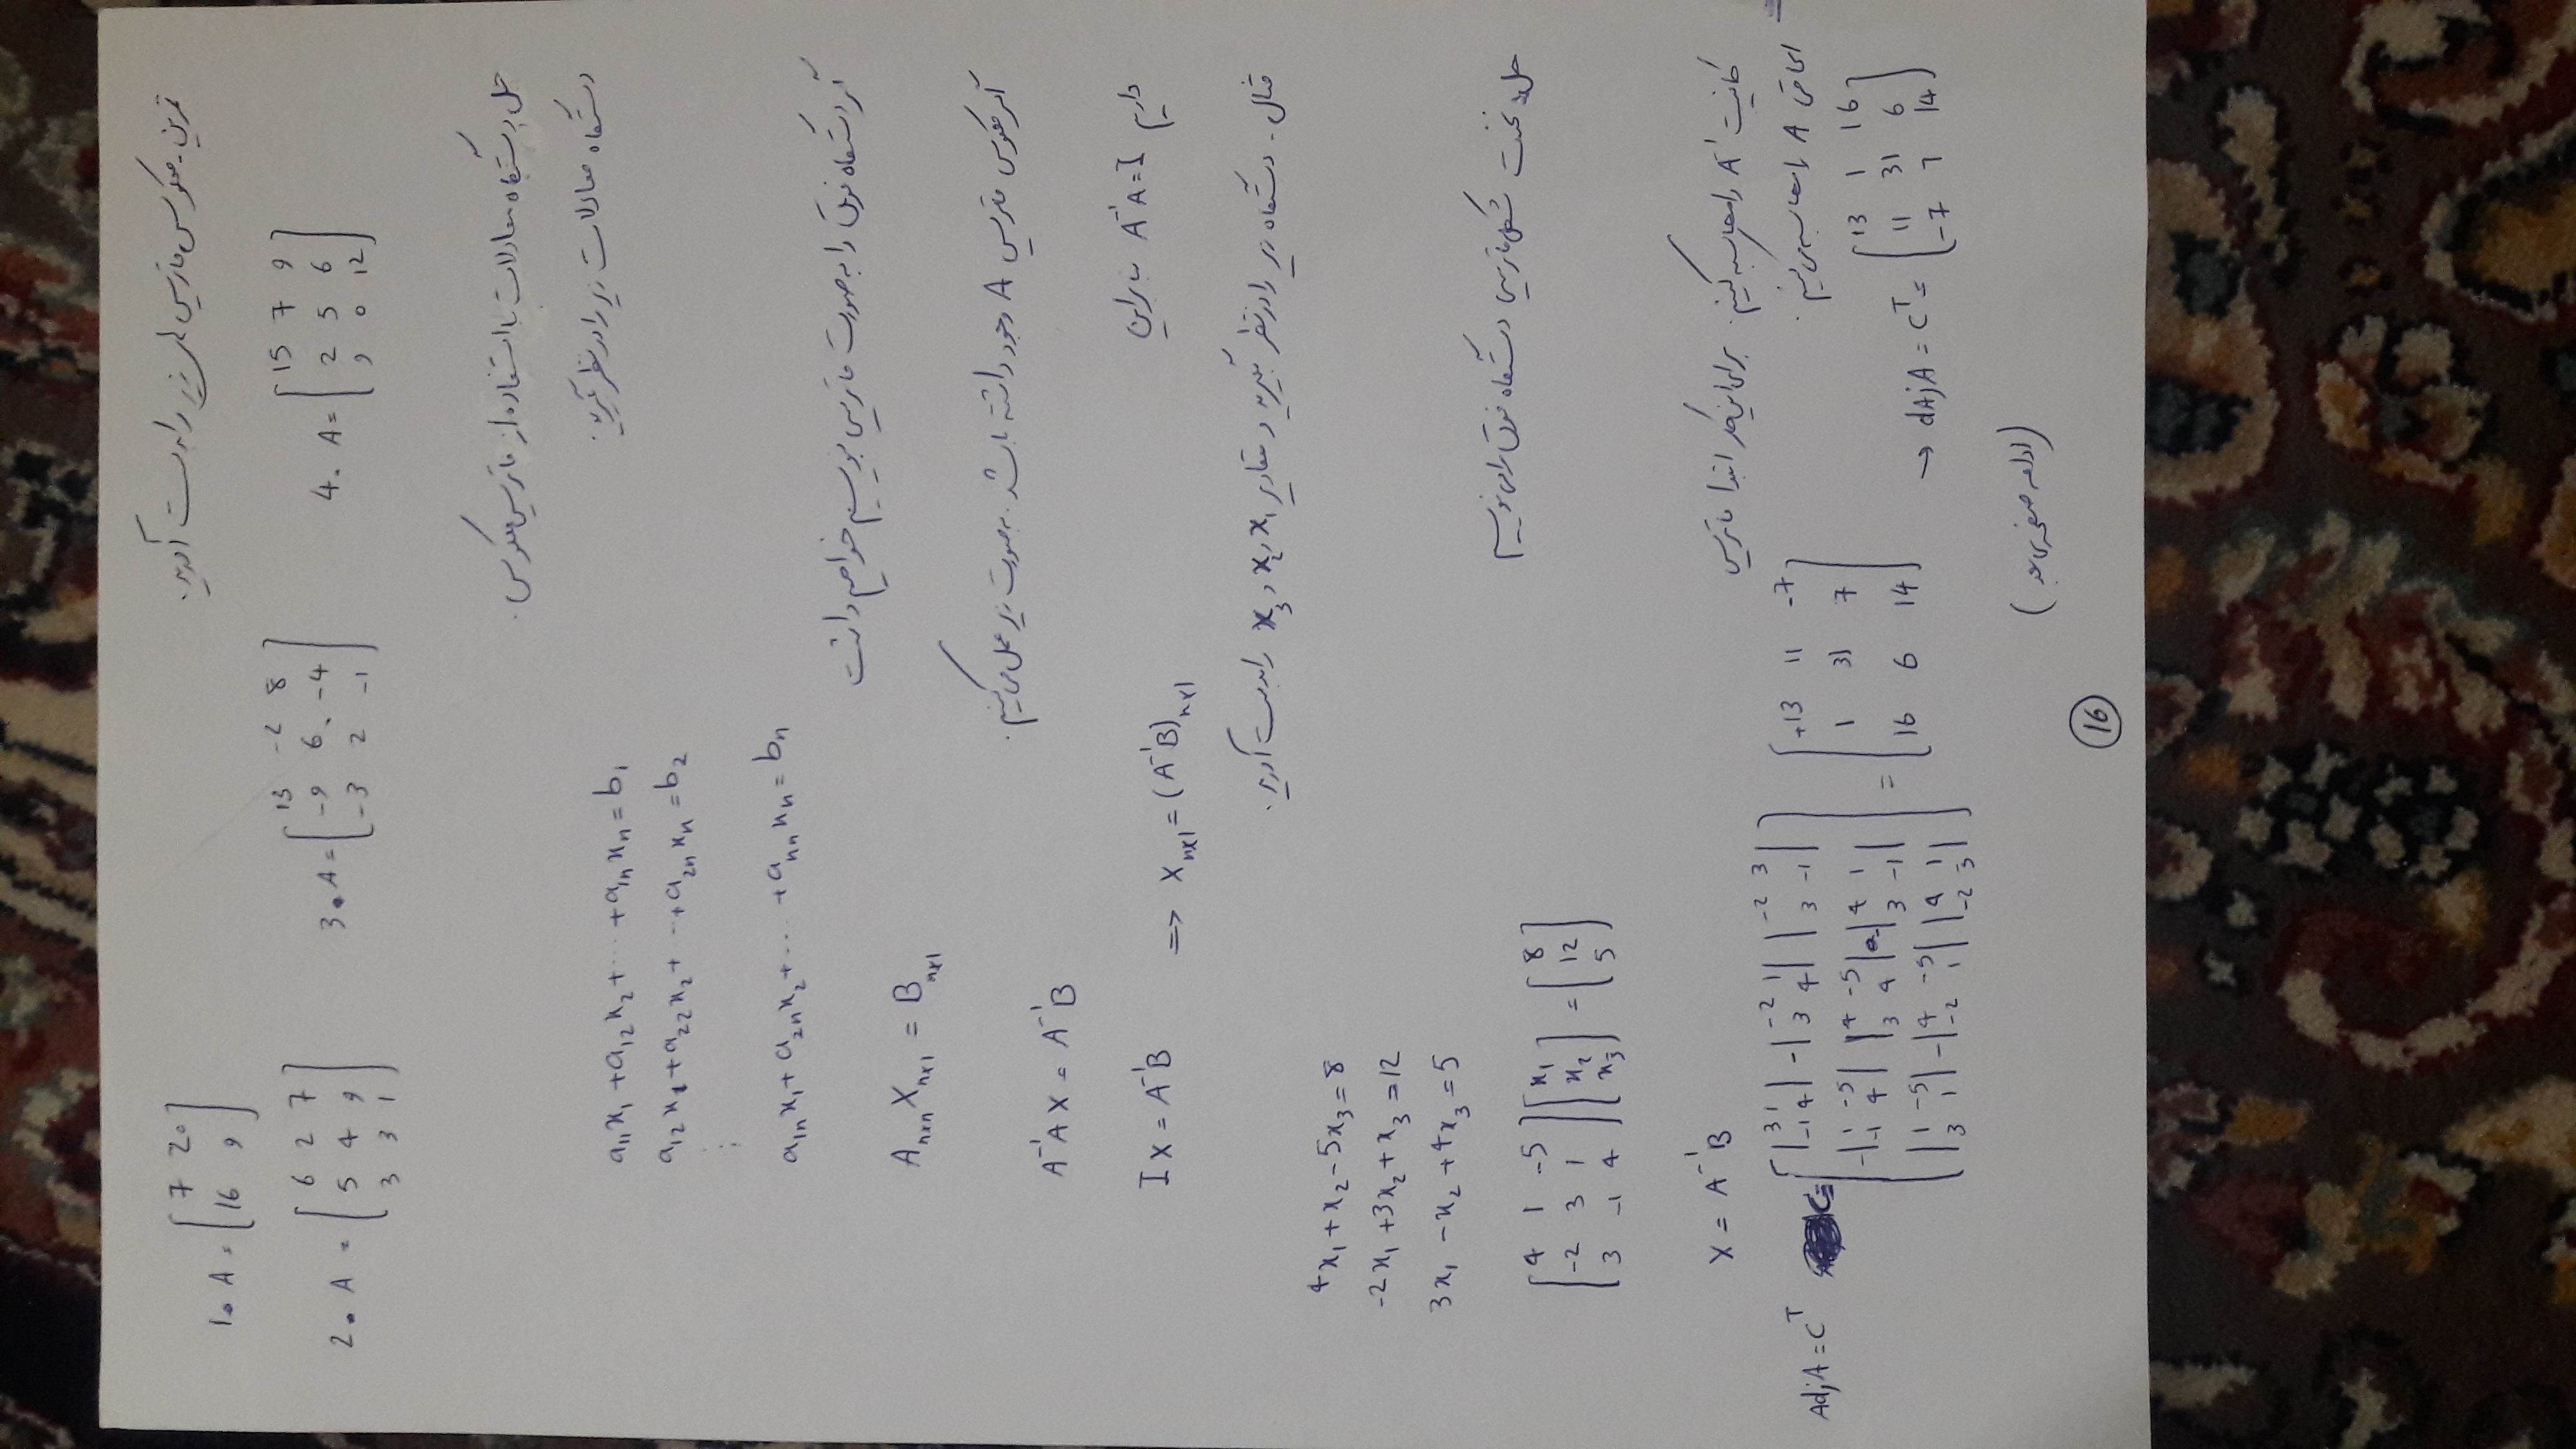 تمرین - معکوس ماتریس های زیر را بدست آورید.
1. A = [7 20; 16 9]
2. A = [6 2 7; 5 4 9; 3 3 1]
3. A = [13 -2 8; -9 6 -4; -3 2 -1]
4. A = [15 7 9; 2 5 6; 9 0 12]
حل دستگاه معادلات با استفاده از ماتریس معکوس.
دستگاه معادلات زیر را در نظر بگیرید.
a₁₁x₁ + a₁₂x₂ + ... + a₁ₙxₙ = b₁
a₁₂x₁ + a₂₂x₂ + ... + a₂ₙxₙ = b₂
⋮
a₁ₙx₁ + a₂ₙx₂ + ... + aₙₙxₙ = bₙ
اگر دستگاه فوق را به صورت ماتریسی بنویسیم خواهیم داشت
Aₙₓₙ Xₙₓ₁ = Bₙₓ₁
اگر معکوس ماتریس A وجود داشته باشد. به صورت زیر عمل می کنیم.
A⁻¹AX = A⁻¹B
بنابراین A⁻¹A = I داریم
IX = A⁻¹B => Xₙₓ₁ = (A⁻¹B)ₙₓ₁
مثال - دستگاه زیر را در نظر بگیرید و مقادیر x₁ و x₂ و x₃ را بدست آورید.
4x₁ + x₂ - 5x₃ = 8
-2x₁ + 3x₂ + x₃ = 12
3x₁ - x₂ + 4x₃ = 5
حل: نخست شکل ماتریسی دستگاه فوق را می نویسیم
[4 1 -5; -2 3 1; 3 -1 4] [x₁; x₂; x₃] = [8; 12; 5]
X = A⁻¹B
کافیست A⁻¹ را محاسبه کنیم. برای این کار ابتدا ماتریس
الحاقی A را محاسبه می کنیم.
AdjA = Cᵀ
C = [|3 1; -1 4| -|-2 1; 3 4| |-2 3; 3 -1|; -|1 -5; -1 4| |4 -5; 3 4| -|4 1; 3 -1|; |1 -5; 3 1| -|4 -5; -2 1| |4 1; -2 3|] = [+13 11 -7; 1 31 7; 16 6 14]
→ dAjA = Cᵀ = [13 1 16; 11 31 6; -7 7 14]
(ادامه صفحه ی بعد)
16